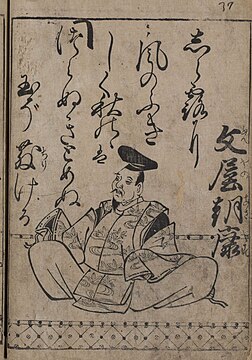 37
文屋朝康
しら露に
風のふき
しく秋のゝは
つらぬきとめぬ
玉ぞ散ける